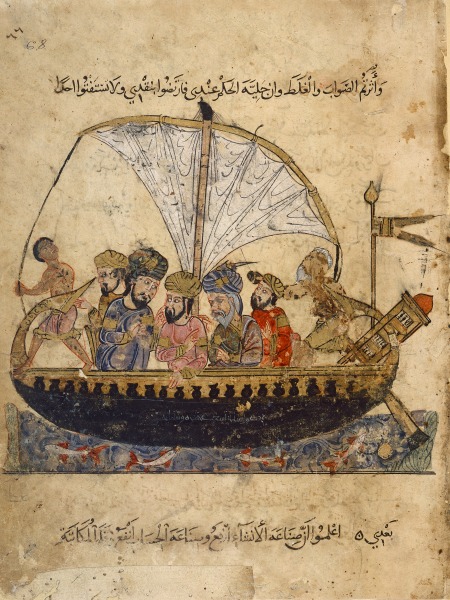 68
وأثرتم الصواب والغلط وان حلية الحكم عندي فارتضوا بنقدي ولا تستفتوا احدا
بعدي ٥ اعلموا ان صناعة الانشاء ارفع وصناعة الحساب انفع المكاتبة